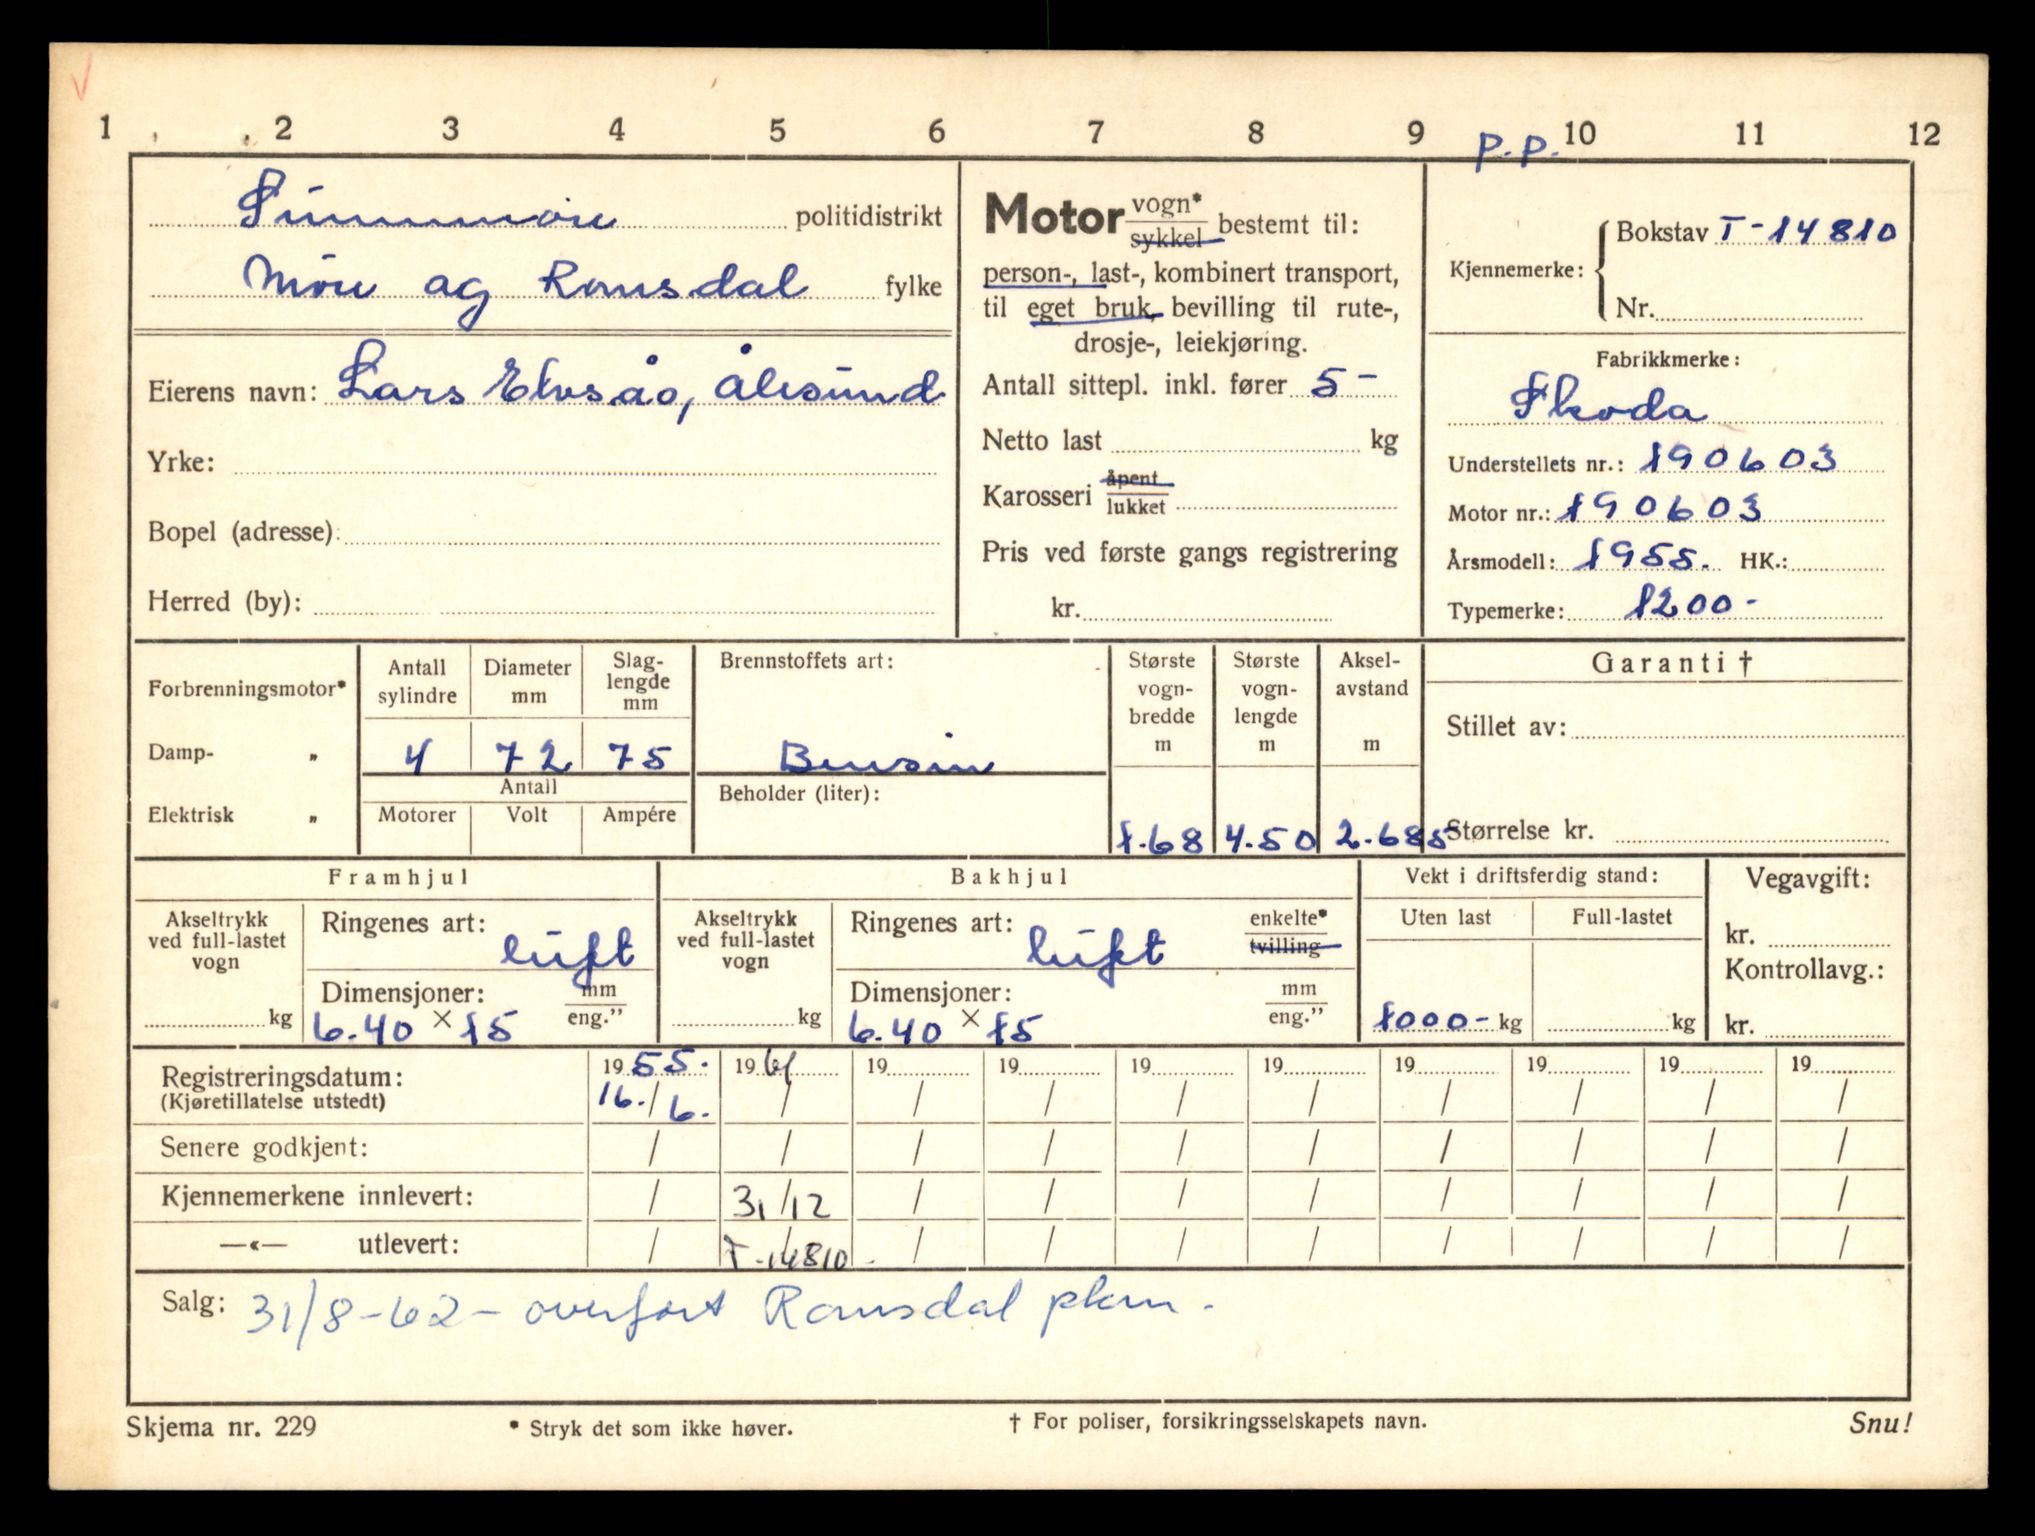 1 2 3 4 5 6 7 8 9 10 11 12
P.P.
Sunnmøre politidistrikt
Møre og Romsdal fylke
Eierens navn: Lars Elvsås, Ålesund
Yrke:
Bopel (adresse):
Herred (by):
Motor vogn* sykkel bestemt til:
person-, last-, kombinert transport,
til eget bruk, bevilling til rute-,
drosje-, leiekjøring.
Antall sittepl. inkl. fører 5-
Netto last kg
Karosseri åpent lukket
Pris ved første gangs registrering
kr.
Kjennemerke: Bokstav T-14810
Nr.
Fabrikkmerke:
Skoda
Understellets nr.: 190603
Motor nr.: 190603
Årsmodell: 1955. HK.:
Typemerke: 1200-
Forbrenningsmotor*
Damp- „
Elektrisk „
Antall sylindre
Diameter mm
Slag-
lengde
mm
4 72 75
Antall
Motorer Volt Ampére
Brennstoffets art:
Bensin
Beholder (liter):
Største
vogn-
bredde
m
1.68
Største
vogn-
lengde
m
4.50
Aksel-
avstand
m
2.685
Garanti †
Stillet av:
Størrelse kr.
Framhjul
Akseltrykk
ved full-lastet
vogn
kg
Ringenes art: luft
Dimensjoner: mm eng.”
6.40 × 15
Bakhjul
Akseltrykk
ved full-lastet
vogn
kg
Ringenes art: luft enkelte* tvilling
Dimensjoner: mm eng.”
6.40 × 15
Vekt i driftsferdig stand:
Uten last Full-lastet
1000- kg kg
Vegavgift:
kr.
Kontrollavg.:
kr.
Registreringsdatum: 1955. 1961 19 19 19 19 19 19 19 19
(Kjøretillatelse utstedt) 16./6. / / / / / / / / /
Senere godkjent: / / / / / / / / / /
Kjennemerkene innlevert: / 31/12 / / / / / / / /
—«— utlevert: / T-14810- / / / / / / / /
Salg: 31/8-62- overført Romsdal pkm.
Skjema nr. 229 * Stryk det som ikke høver. † For poliser, forsikringsselskapets navn. Snu!